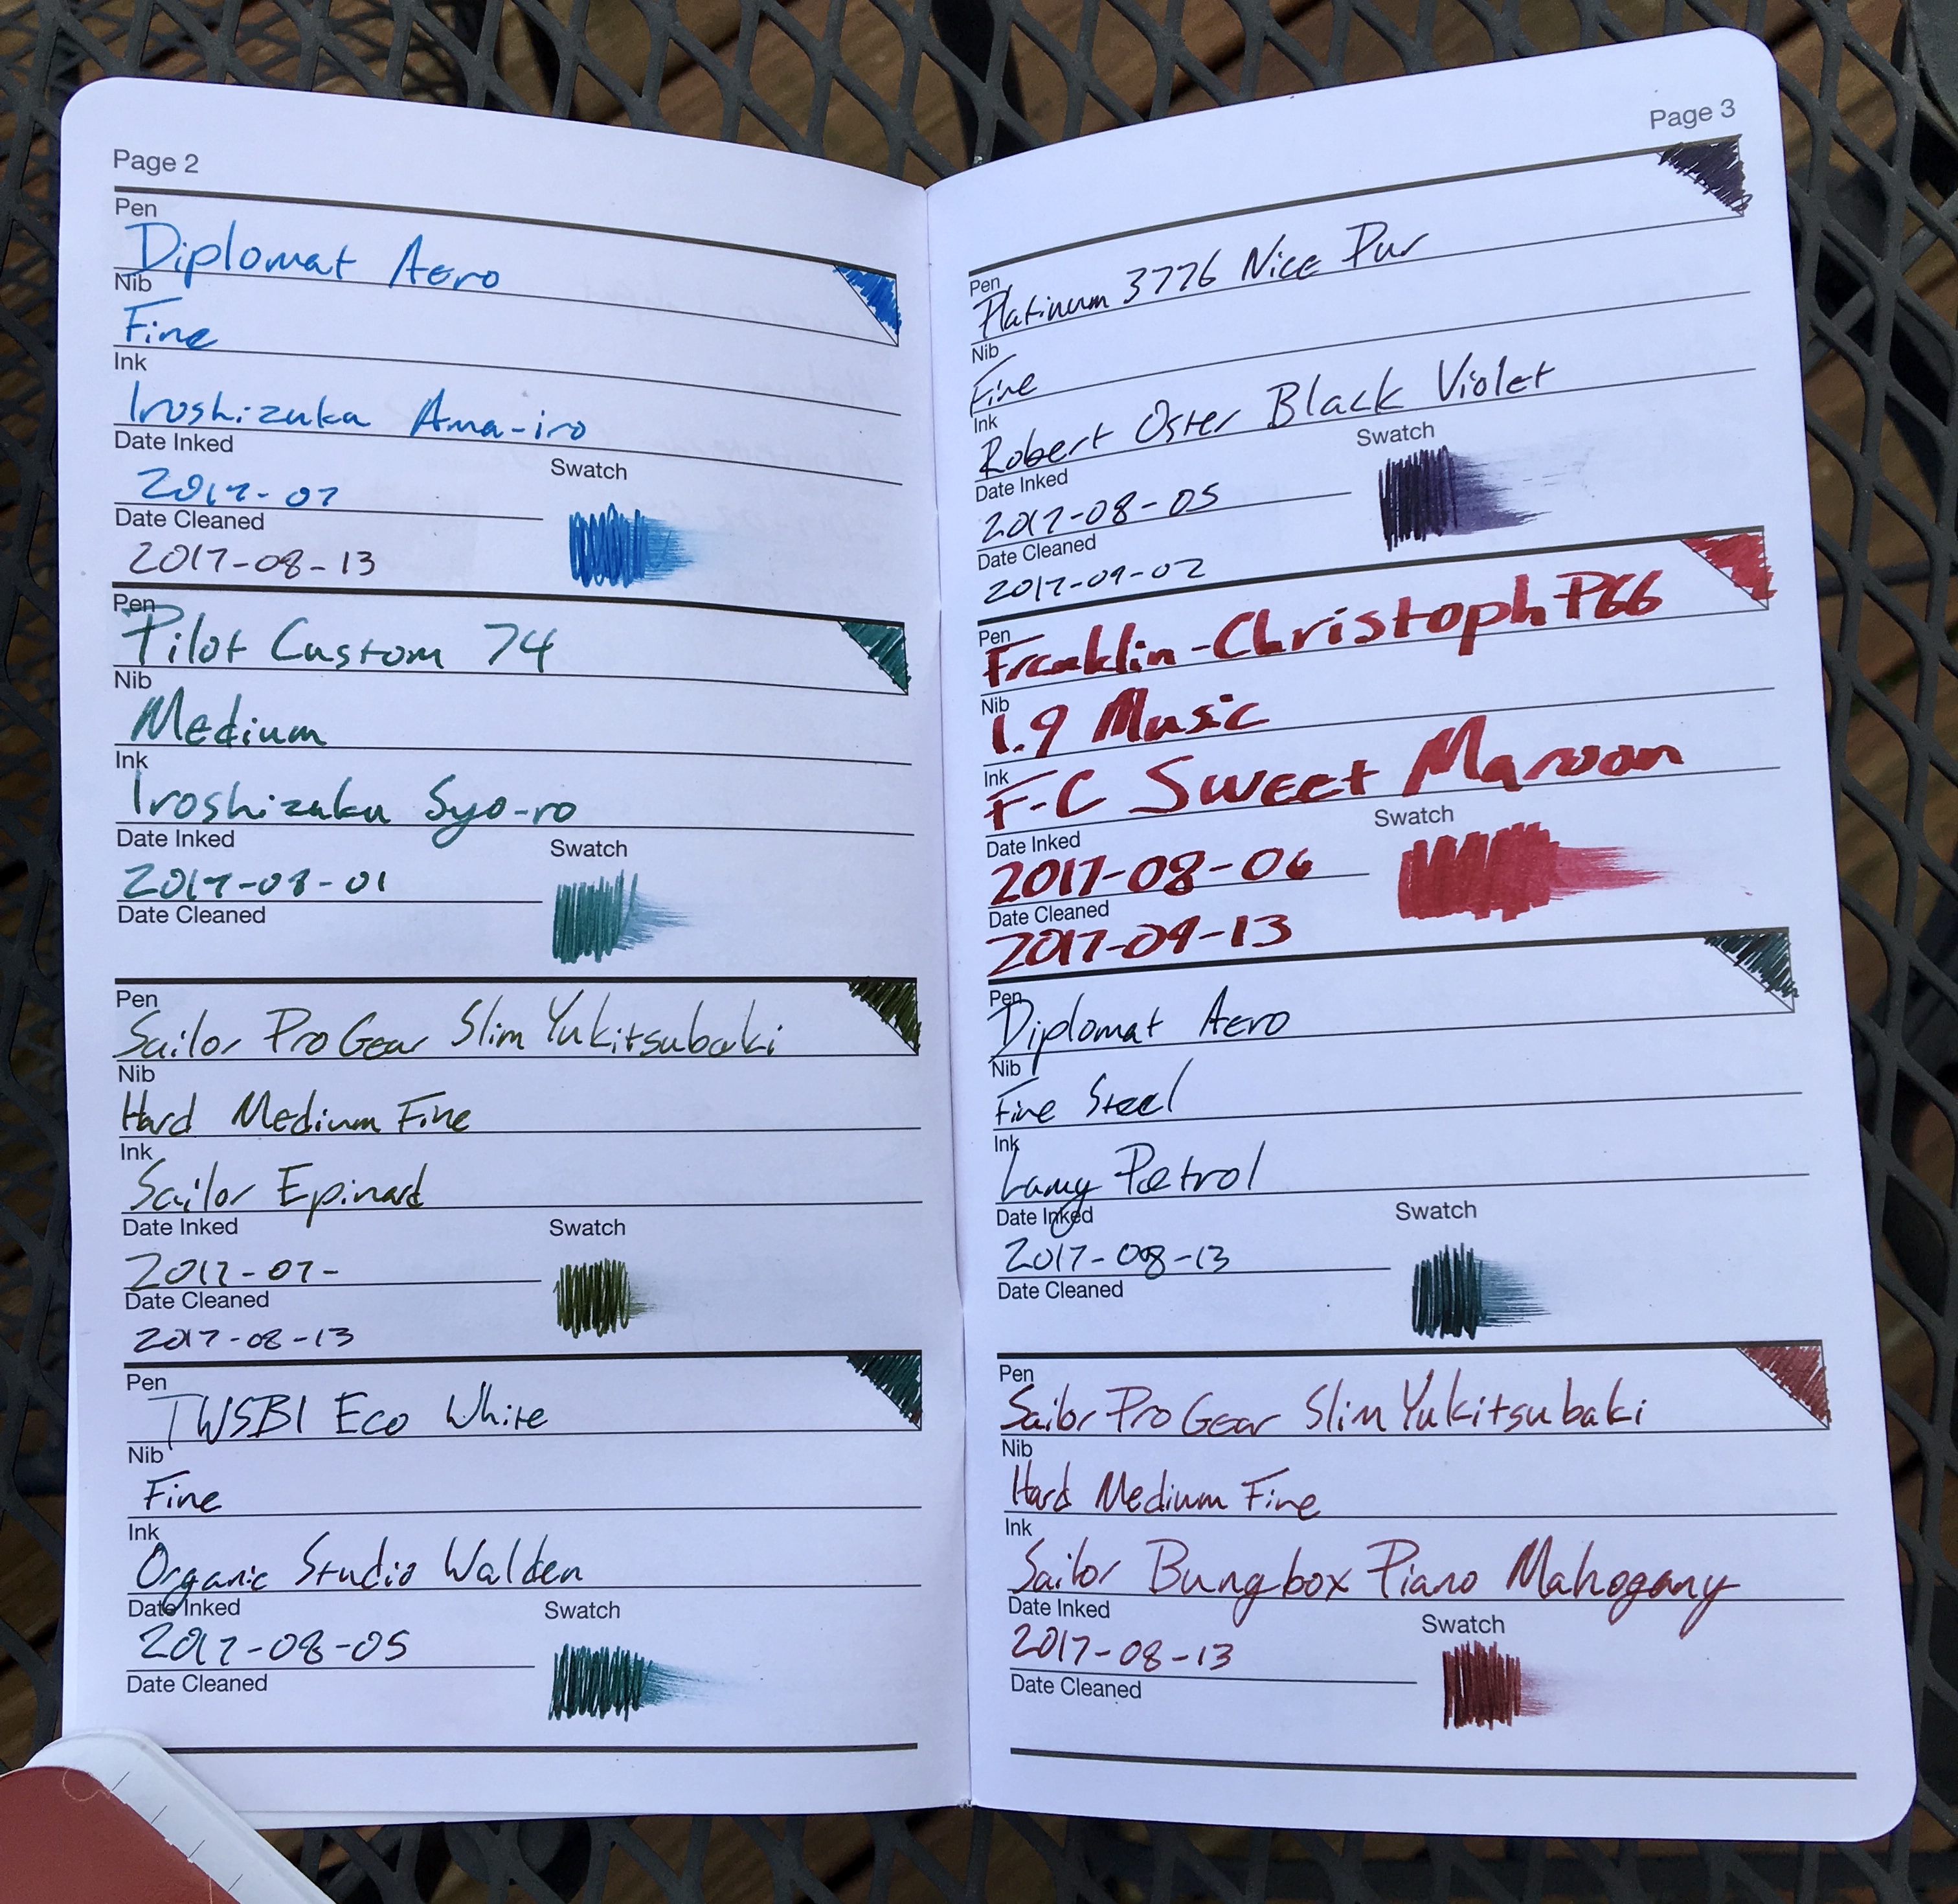 Page 2
Pen
Diplomat Aero
Nib
Fine
Ink
Iroshizuka Ama-iro
Date Inked
2017-07
Swatch
Date Cleaned
2017-08-13
Pen
Pilot Custom 74
Nib
Medium
Ink
Iroshizuku Syo-ro
Date Inked
2017-08-01
Swatch
Date Cleaned
Pen
Sailor Pro Gear Slim Yukitsubaki
Nib
Hard Medium Fine
Ink
Sailor Epinard
Date Inked
2017-07-
Swatch
Date Cleaned
2017-08-13
Pen
TWSBI Eco White
Nib
Fine
Ink
Organic Studio Walden
Date Inked
2017-08-05
Swatch
Date Cleaned
Page 3
Pen
Platinum 3776 Nice Pur
Nib
Fine
Ink
Robert Oster Black Violet
Date Inked
2017-08-05
Swatch
Date Cleaned
2017-09-02
Pen
Franklin-Christoph P66
Nib
1.9 Music
Ink
F-C Sweet Maroon
Date Inked
2017-08-06
Swatch
Date Cleaned
2017-09-13
Pen
Diplomat Aero
Nib
Fine Steel
Ink
Lamy Petrol
Date Inked
2017-08-13
Swatch
Date Cleaned
Pen
Sailor Pro Gear Slim Yukitsubaki
Nib
Hard Medium Fine
Ink
Sailor Bungbox Piano Mahogany
Date Inked
2017-08-13
Swatch
Date Cleaned